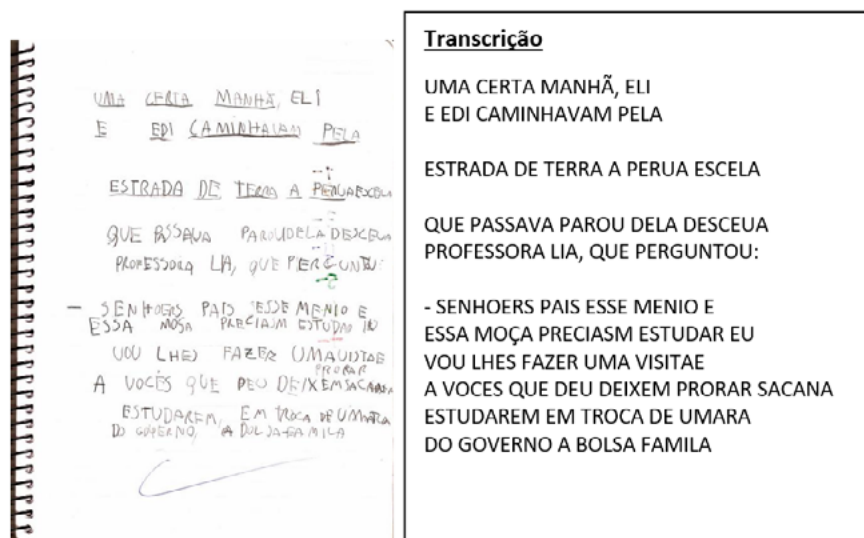 UMA CERTA MANHÃ, ELI
E EDI CAMINHAVAM PELA
ESTRADA DE TERRA A PERUA ESCELA
QUE PASSAVA PAROU DELA DESCEUA
PROFESSORA LIA, QUE PERGUNTOU:
- SENHOERS PAIS ESSE MENIO E
ESSA MOSA PRECIASM ESTUDAR
VOU LHES FAZER UMA VISTAE
PRORAR
A VOCÊS QUE PEU DEIXEM SACANA
ESTUDAREM, EM TROCA DE UMARA
DO GOVERNO, A BOLSA FAMILA
Transcrição
UMA CERTA MANHÃ, ELI
E EDI CAMINHAVAM PELA
ESTRADA DE TERRA A PERUA ESCELA
QUE PASSAVA PAROU DELA DESCEUA
PROFESSORA LIA, QUE PERGUNTOU:
- SENHOERS PAIS ESSE MENIO E
ESSA MOÇA PRECIASM ESTUDAR EU
VOU LHES FAZER UMA VISITAE
A VOCES QUE DEU DEIXEM PRORAR SACANA
ESTUDAREM EM TROCA DE UMARA
DO GOVERNO A BOLSA FAMILA